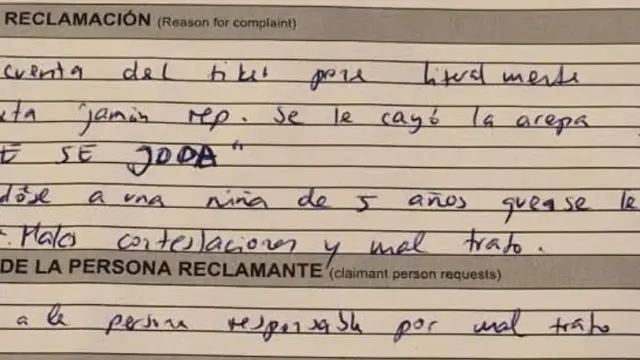 RECLAMACIÓN (Reason for complaint)
cuenta del tiket pone literalmente
jamón rep. se le cayó la arepa
E SE JODA"
dóse a una niña de 5 años que se le
. Malas contestaciones y mal trato.
DE LA PERSONA RECLAMANTE (claimant person requests)
a la persona responsable por mal trato